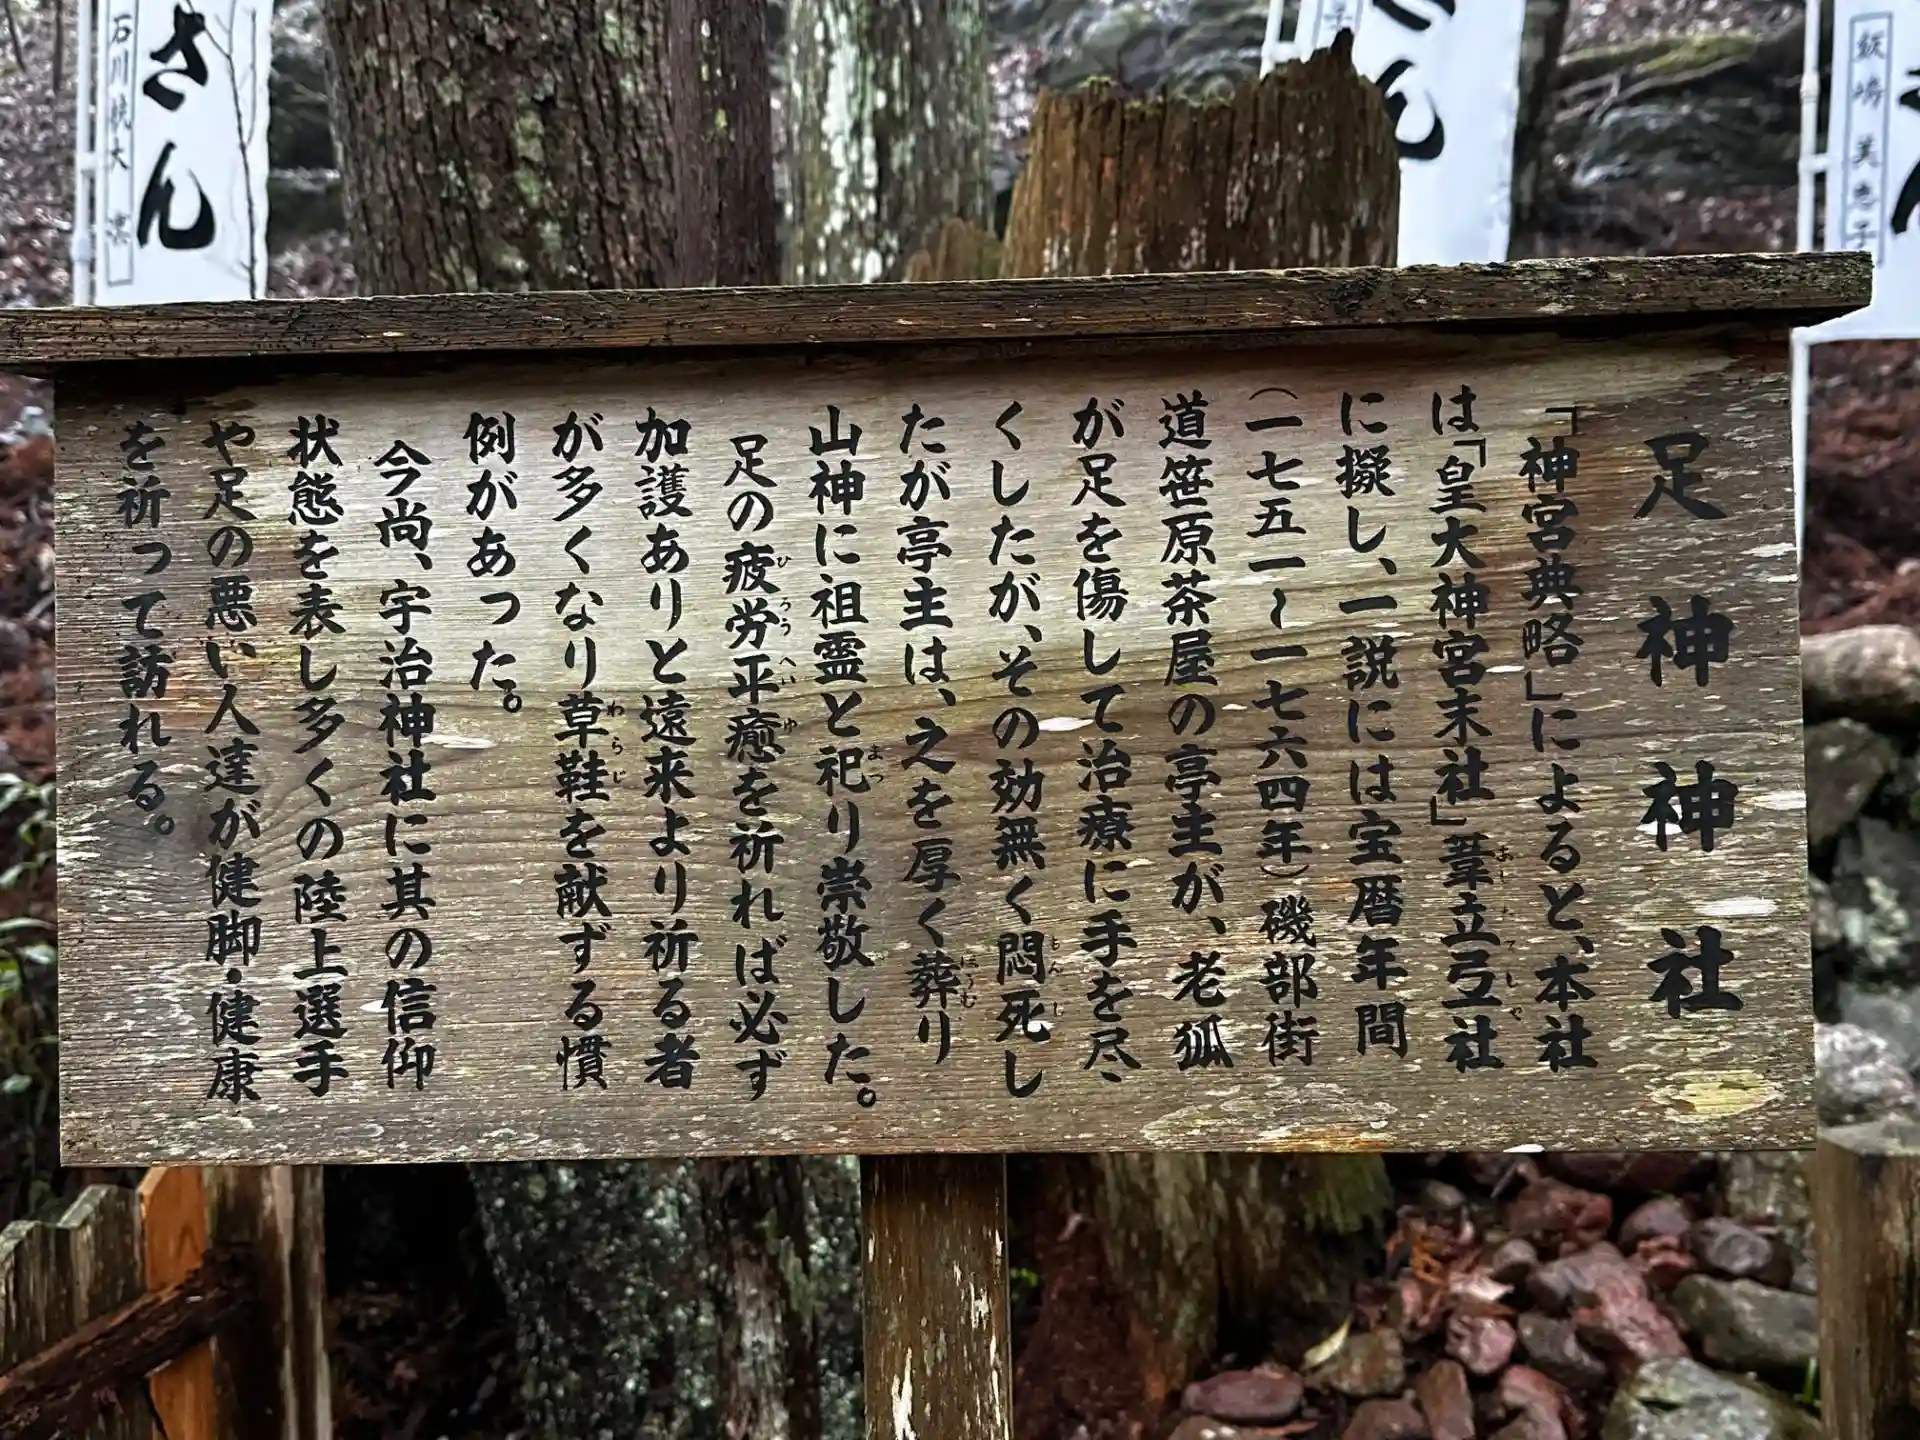 足神神社
「神宮典略」によると、本社
は「皇大神宮末社」葦立弖社
に擬し、一説には宝暦年間
（一七五一～一七六四年）磯部街
道笹原茶屋の亭主が、老狐
が足を傷して治療に手を尽
くしたが、その効無く悶死し
たが亭主は、之を厚く葬り
山神に祖霊と祀り崇敬した。
足の疲労平癒を祈れば必ず
加護ありと遠来より祈る者
が多くなり草鞋を献ずる慣
例があった。
今尚、宇治神社に其の信仰
状態を表し多くの陸上選手
や足の悪い人達が健脚・健康
を祈って訪れる。
さん
さん